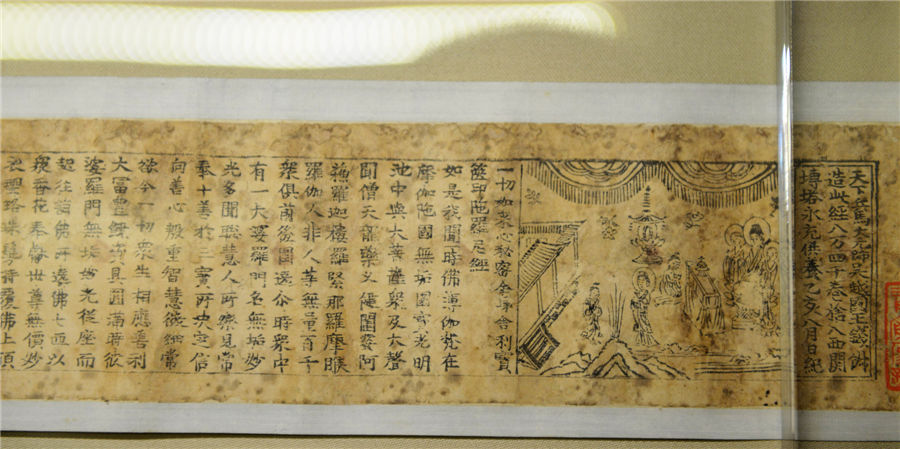 天下兵馬大元帥吳越國王錢俶
造此經八万四千卷捨入西關
塼塔永充供養乙亥八月日紀
一切如來心祕密全身舍利寶
篋印陀羅尼經
如是我聞一時佛薄伽梵在
摩伽陀國無垢園寶光明
池中與大菩薩衆及大聲
聞僧天龍藥叉健闥婆阿
蘇羅迦樓羅緊那羅摩睺
羅伽人非人等無量百千
衆俱前後圍遶尒時衆中
有一大婆羅門名無垢妙
光多聞聰慧人所樂見常
奉十善於三寶所決定信
向善心殷重智慧微細常
欲令一切衆生相應善利
大富豐饒資具圓滿時彼
婆羅門無垢妙光從座而
起往詣佛所遶佛七匝以
衆香花奉獻世尊無價妙
衣瓔珞珠鬘持覆佛上頂